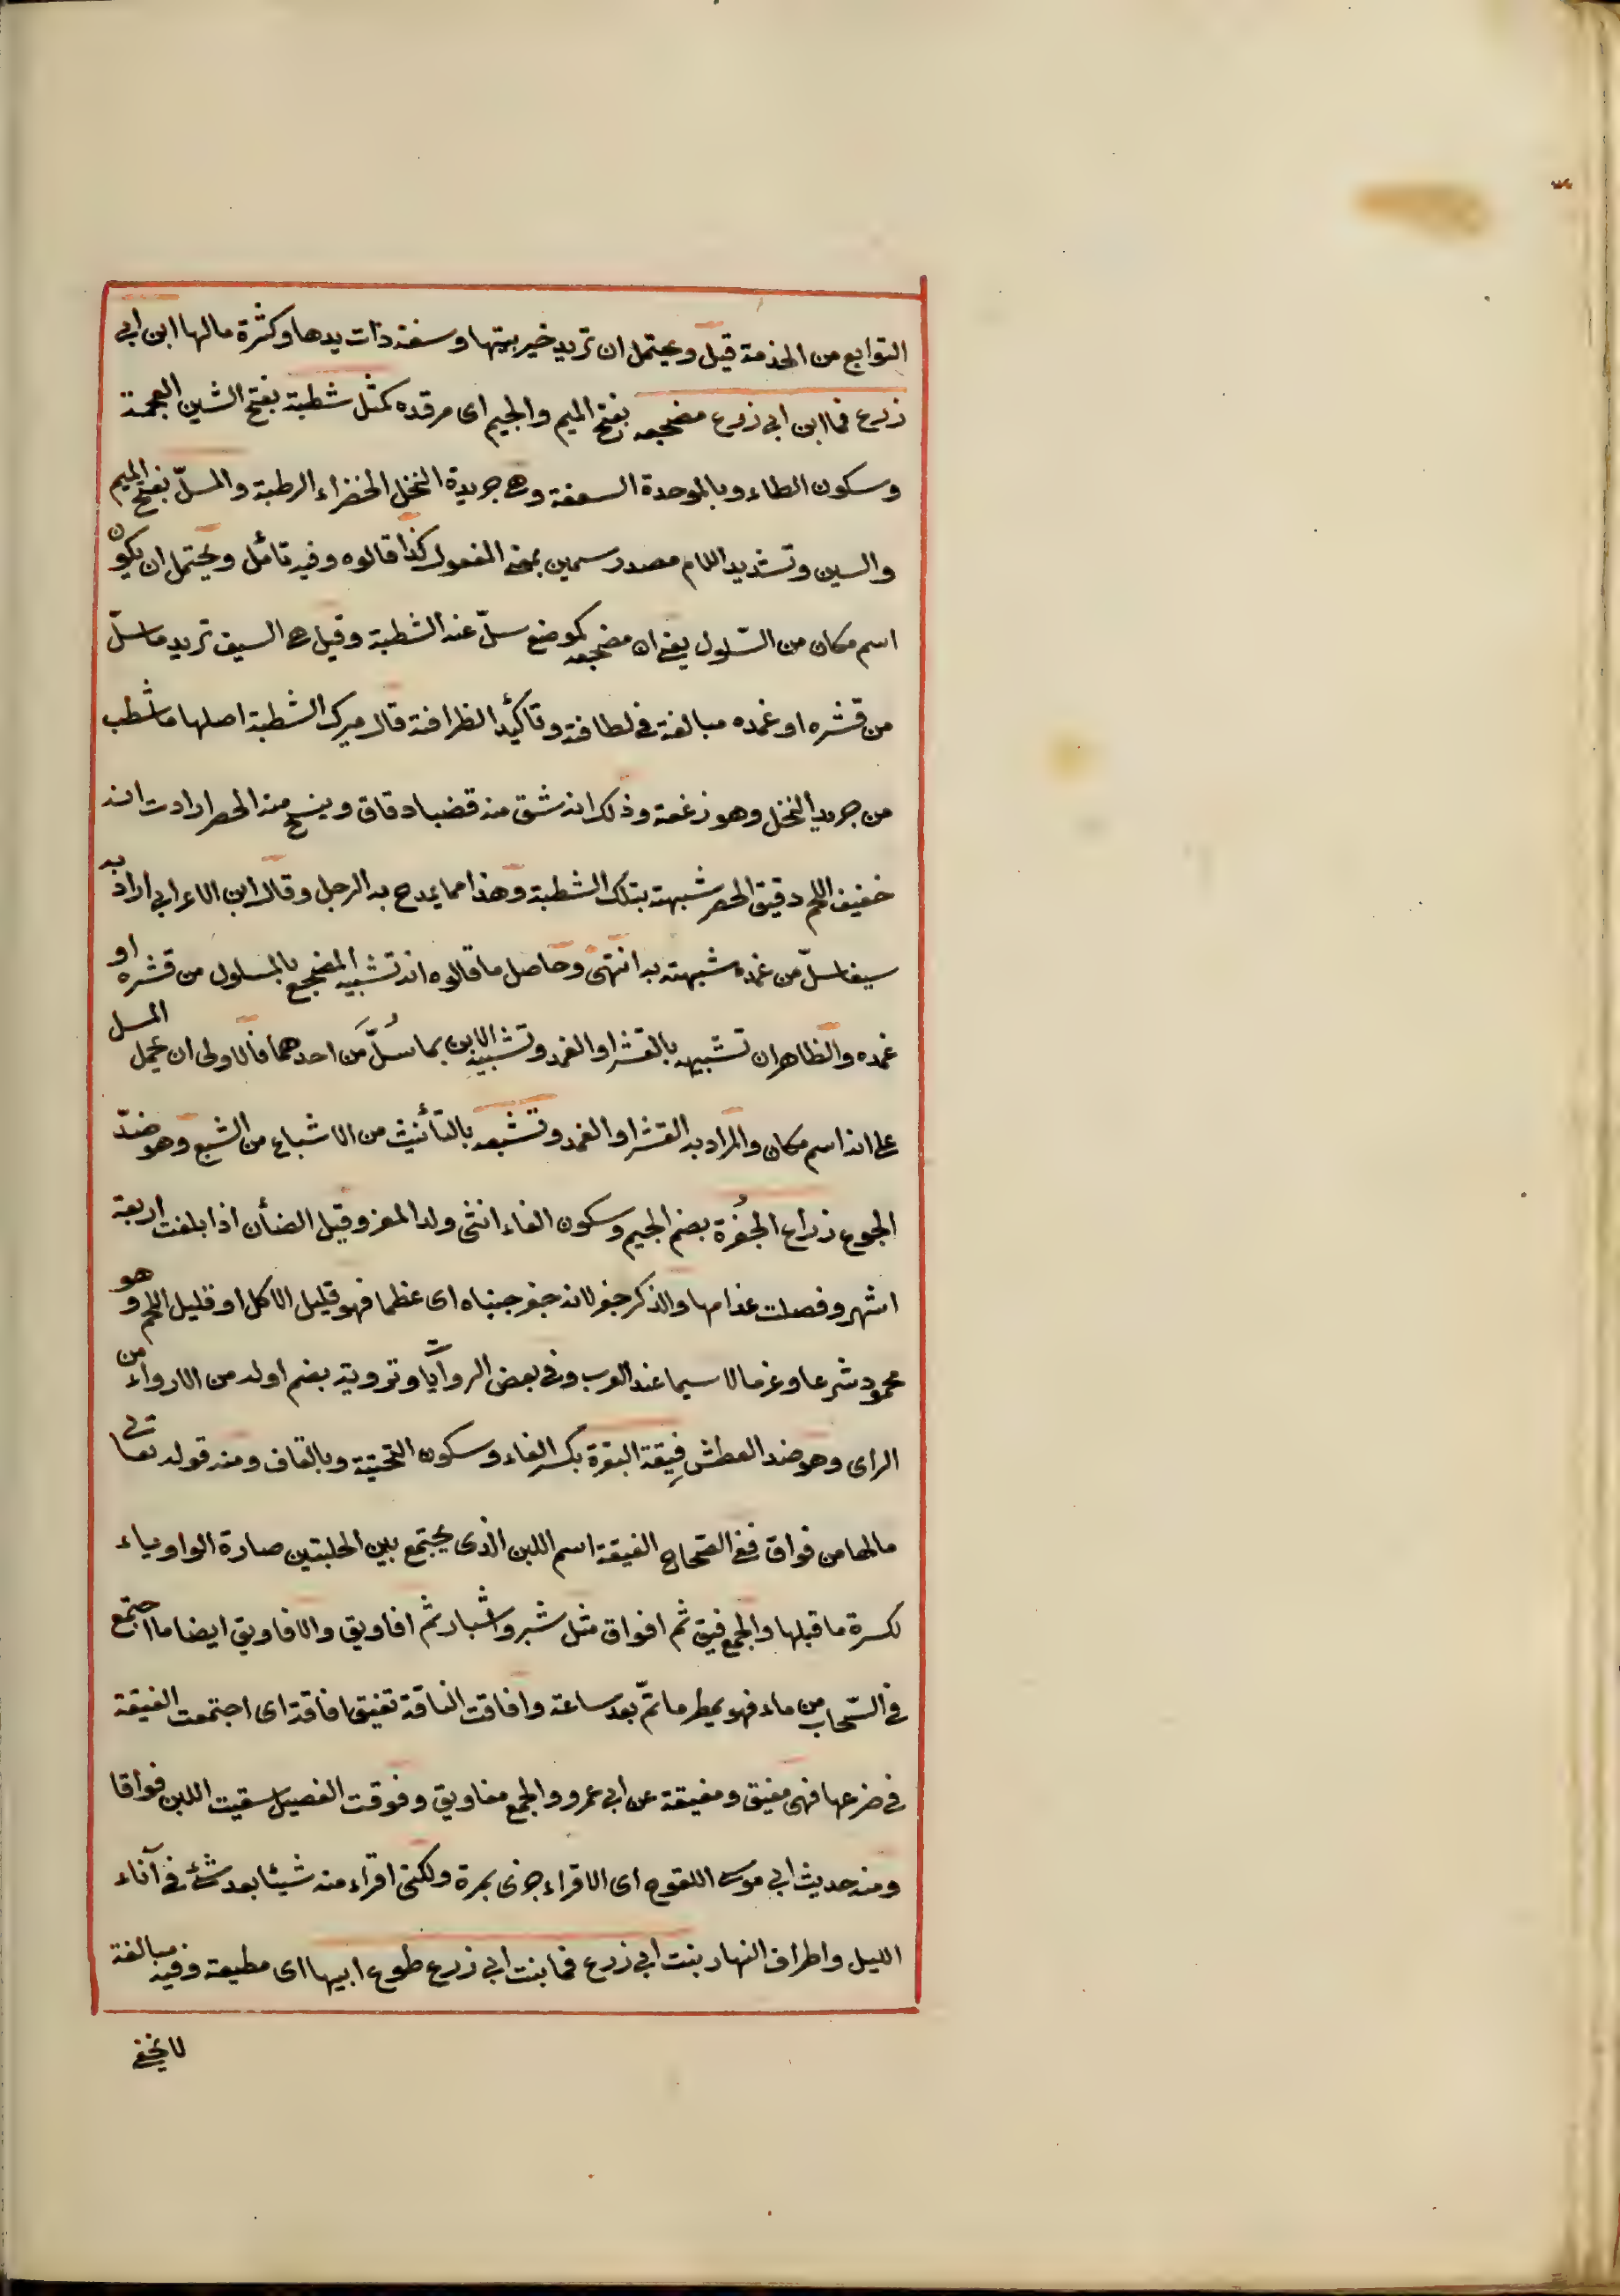 التوابع من الخدمة قيل ويحتمل ان تريد خير بيتها وسعة ذات يدها وكثرة مالها ابن ابي
زرع فما ابن ابي زرع مضجعه بفتح الميم والجيم اى مرقده كمثل شطبة بفتح الشين المعجمة
وسكون الطاء وبالموحدة السعفة وهى جريدة النخل الخضراء الرطبة والمسلّ بفتح الميم
والسين وتشديد اللام مصدر سمين بمعنى المفعول كذا قالوه وفيه تأمل ويحتمل ان يكون
اسم مكان من السّلول يعنى ان مضجعه كموضع سلّ عنه الشطبة وقيل هى السيف تريد ما سلّ
من قشره او غمده مبالغة فى لطافة وتاكيد الظرافة قال ميرك الشطبة اصلها ما شطب
من جريد النخل وهو زعمة وذلك انه شق منه قضبا دقاق وينسج منه الحصر ارادت انه
خفيف اللحم دقيق الخصر شبهته بتلك الشطبة وهذا مما يمدح به الرجل وقال ابن الاعرابي اراد به
سيفا سلّ من غمده شبهته به انتهى وحاصل ما قالوه انه تشبيه المضجع بالمسلول من قشره او
غمده والظاهر ان تشبيهه بالقشر او الغمد وتشبيه الابن بما سُلَّ من احدهما فالاولى ان يحمل المسل
على انه اسم مكان والمراد به القشر او الغمد وتشبعه بالتأنيث من الاشباع من الشبع وهو ضدّ
الجوع ذراع الجُفرة بضم الجيم وسكون الفاء انثى ولد المعز وقيل الضأن اذا بلغت اربعة
اشهر وفصلت عن امها والذكر جفر لانه جفر جنباه اى عظما فهو قليل الاكل او قليل اللحم وهو
محمود شرعا وعرفا لا سيما عند العرب وفى بعض الروايات وترويه بضم اوله من الارواء من
الراى وهو ضد العطش فِيقة البقرة بكسر الفاء وسكون التحتية وبالقاف ومنه قوله تعالى
مالها من فواق ففى الصحاح الفيقة اسم اللبن الذى يجتمع بين الحلبتين صارة الواو ياء
لكسرة ما قبلها والجمع فيق ثم افواق مثل شبر واشبار ثم افاويق والافاويق ايضا ما اجتمع
فى السّحاب من ماء فهو يمطر ما تمّ بعد ساعة وافاقت الناقة تفيق افاقة اى اجتمعت الفيقة
فى ضرعها فهى مفيق ومفيقة عن ابي عمرو والجمع مفاويق وفوقت الفصيل سقيت اللبن فواقا
ومنه حديث ابي موسى اللقوح اى لا اقراء جزى بمرة ولكنى اقراء منه شيئا بعد شئ فى آناء
الليل واطراف النهار بنت ابي زرع فما بنت ابي زرع طوع ابيها اى مطيعة وفيه مبالغة
لا يخفى